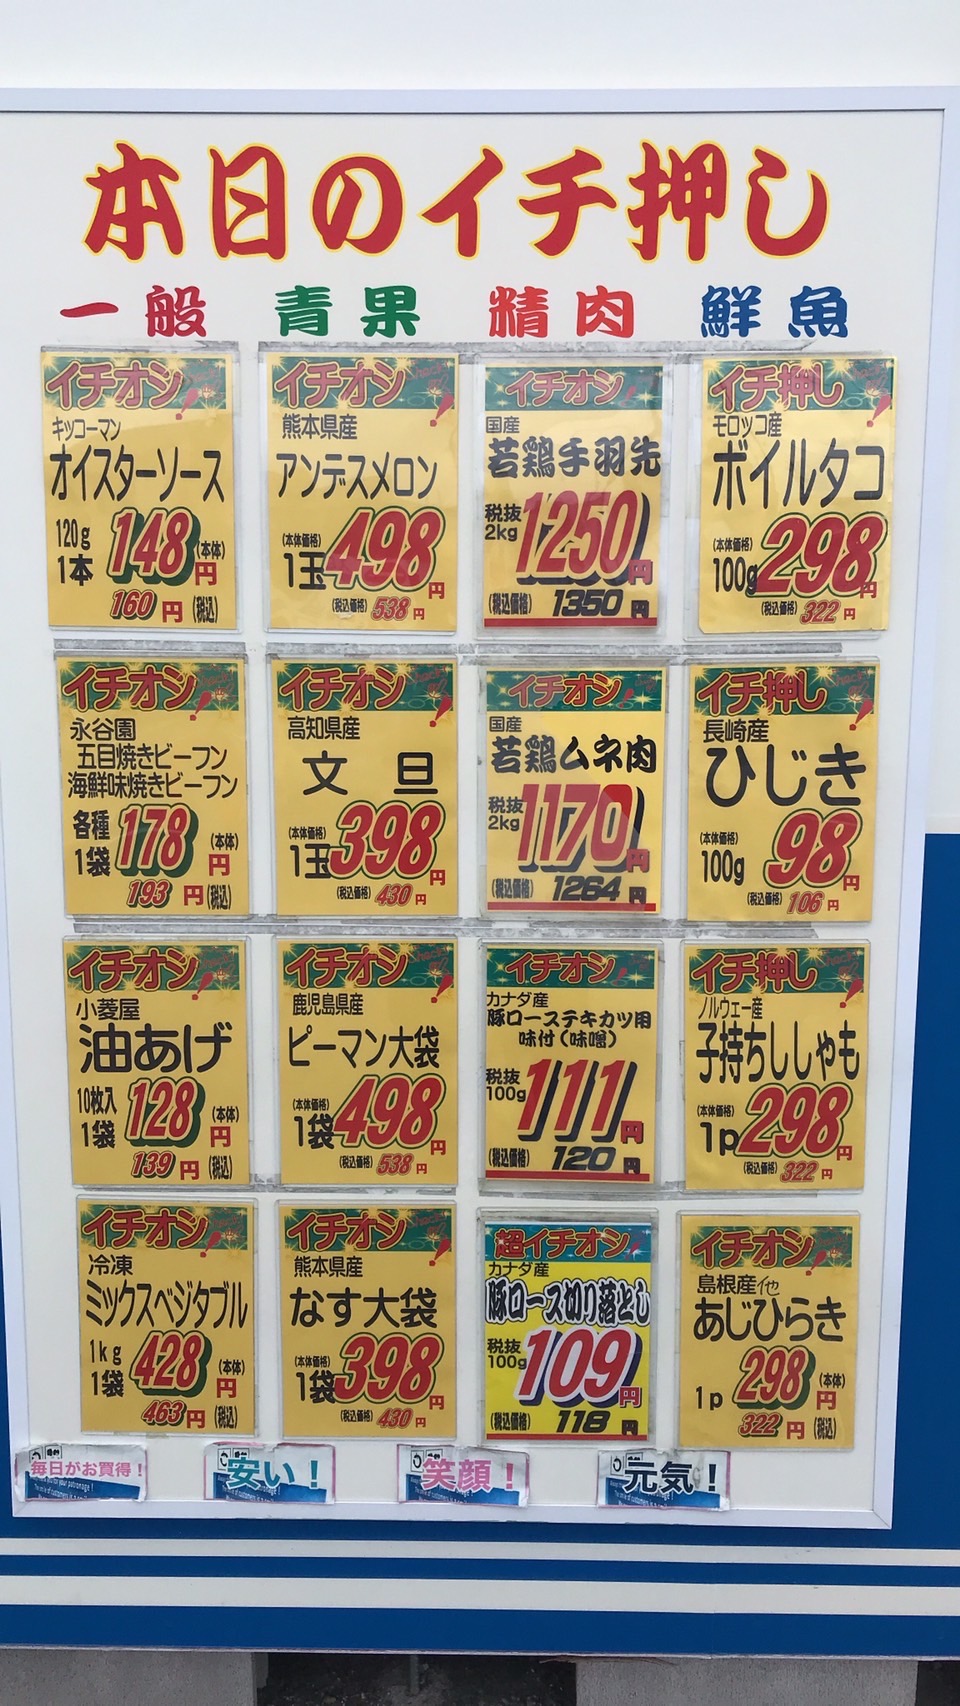 本日のイチ押し
一般 青果 精肉 鮮魚
イチオシ!
キッコーマン
オイスターソース
120g
1本
148円(本体)
160円(税込)
イチオシ!
熊本県産
アンデスメロン
(本体価格)
1玉498円
(税込価格)538円
イチオシ!
国産
若鶏手羽先
税抜
2kg
1250円
(税込価格)1350円
イチ押し!
モロッコ産
ボイルタコ
(本体価格)
100g298円
(税込価格)322円
イチオシ!
永谷園
五目焼きビーフン
海鮮味焼きビーフン
各種
1袋
178円(本体)
193円(税込)
イチオシ!
高知県産
文旦
(本体価格)
1玉398円
(税込価格)430円
イチオシ!
国産
若鶏ムネ肉
税抜
2kg
1170円
(税込価格)1264円
イチ押し!
長崎産
ひじき
(本体価格)
100g
98円
(税込価格)106円
イチオシ!
小菱屋
油あげ
10枚入
1袋
128円(本体)
139円(税込)
イチオシ!
鹿児島県産
ピーマン大袋
(本体価格)
1袋498円
(税込価格)538円
イチオシ!
カナダ産
豚ローステキカツ用
味付(味噌)
税抜
100g
111円
(税込価格)120円
イチ押し!
ノルウェー産
子持ちししゃも
(本体価格)
1p298円
(税込価格)322円
イチオシ!
冷凍
ミックスベジタブル
1kg
1袋
428円(本体)
463円(税込)
イチオシ!
熊本県産
なす大袋
(本体価格)
1袋398円
(税込価格)430円
超イチオシ!
カナダ産
豚ロース切り落とし
税抜
100g
109円
(税込価格)118円
イチオシ!
島根産他
あじひらき
1p
298円(本体)
322円(税込)
毎日がお買得!
安い!
笑顔!
元気!